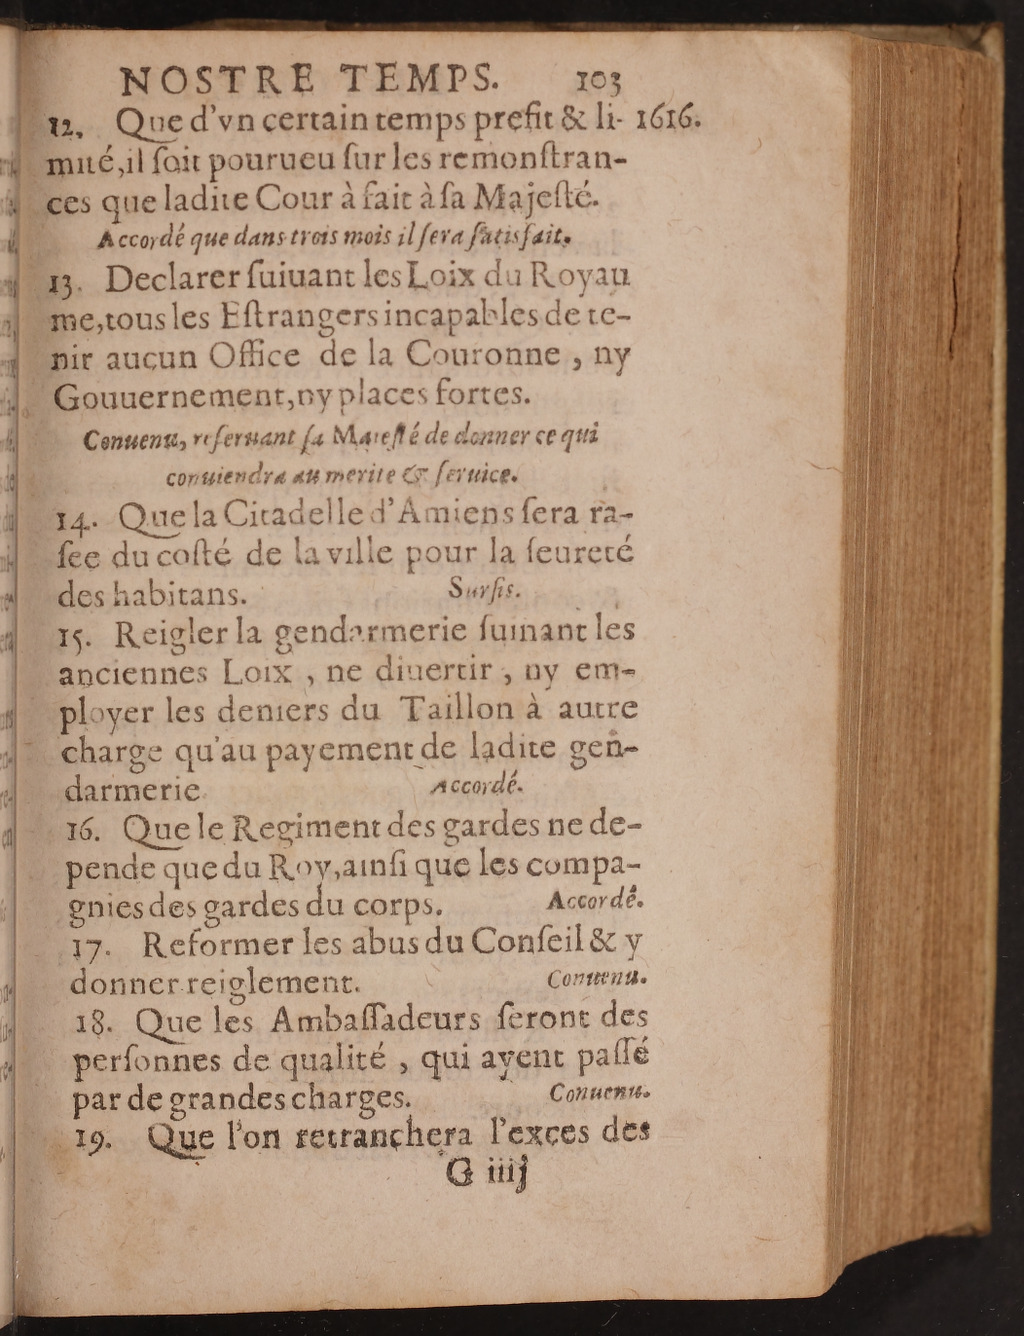 NOSTRE TEMPS. 103
12. Que d'vn certain temps prefit & li- 1616.
mité, il soit pourueu sur les remonſtran-
ces que ladite Cour à fait à ſa Majeſté.
Accordé que dans trois mois il ſera ſatisfait.
13. Declarer ſuiuant les Loix du Royau
me, tous les Eſtrangers incapables de te-
nir aucun Office de la Couronne, ny
Gouuernement, ny places fortes.
Conuenu, reſeruant ſa Maieſté de donner ce qui
conuiendra au merite & ſeruice.
14. Que la Citadelle d'Amiens ſera ra-
ſee du coſté de la ville pour la ſeureté
des habitans. Surſis.
15. Reigler la gendarmerie ſuiuant les
anciennes Loix, ne diuertir, ny em-
ployer les deniers du Taillon à autre
charge qu'au payement de ladite gen-
darmerie. Accordé.
16. Que le Regiment des gardes ne de-
pende que du Roy, ainſi que les compa-
gnies des gardes du corps. Accordé.
17. Reformer les abus du Conſeil & y
donner reiglement. Conuenu.
18. Que les Ambaſſadeurs ſeront des
perſonnes de qualité, qui ayent paſſé
par de grandes charges. Conuenu.
19. Que l'on retranchera l'exces des
G iiij